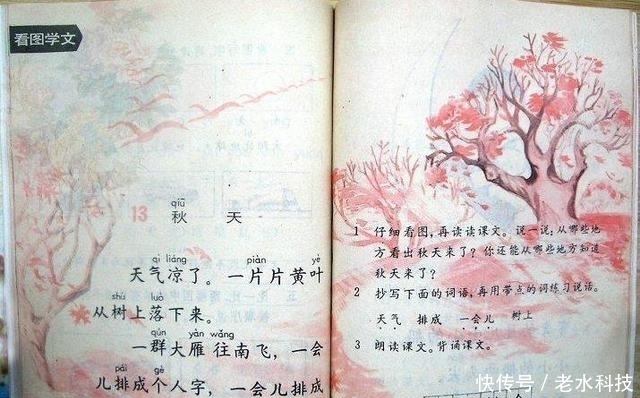 看图学文
qiū
13 秋 天
qì liáng piàn yè
天气凉了。一片片黄叶
shù luò
从树上落下来。
qún yàn wǎng
一群大雁往南飞，一会
pái gè
儿排成个人字，一会儿排成
1 仔细看图，再读读课文。说一说：从哪些地
方看出秋天来了？你还能从哪些地方知道
秋天来了？
2 抄写下面的词语，再用带点的词练习说话。
天气 排成 一会儿 树上
3 朗读课文。背诵课文。
快传号／老水科技